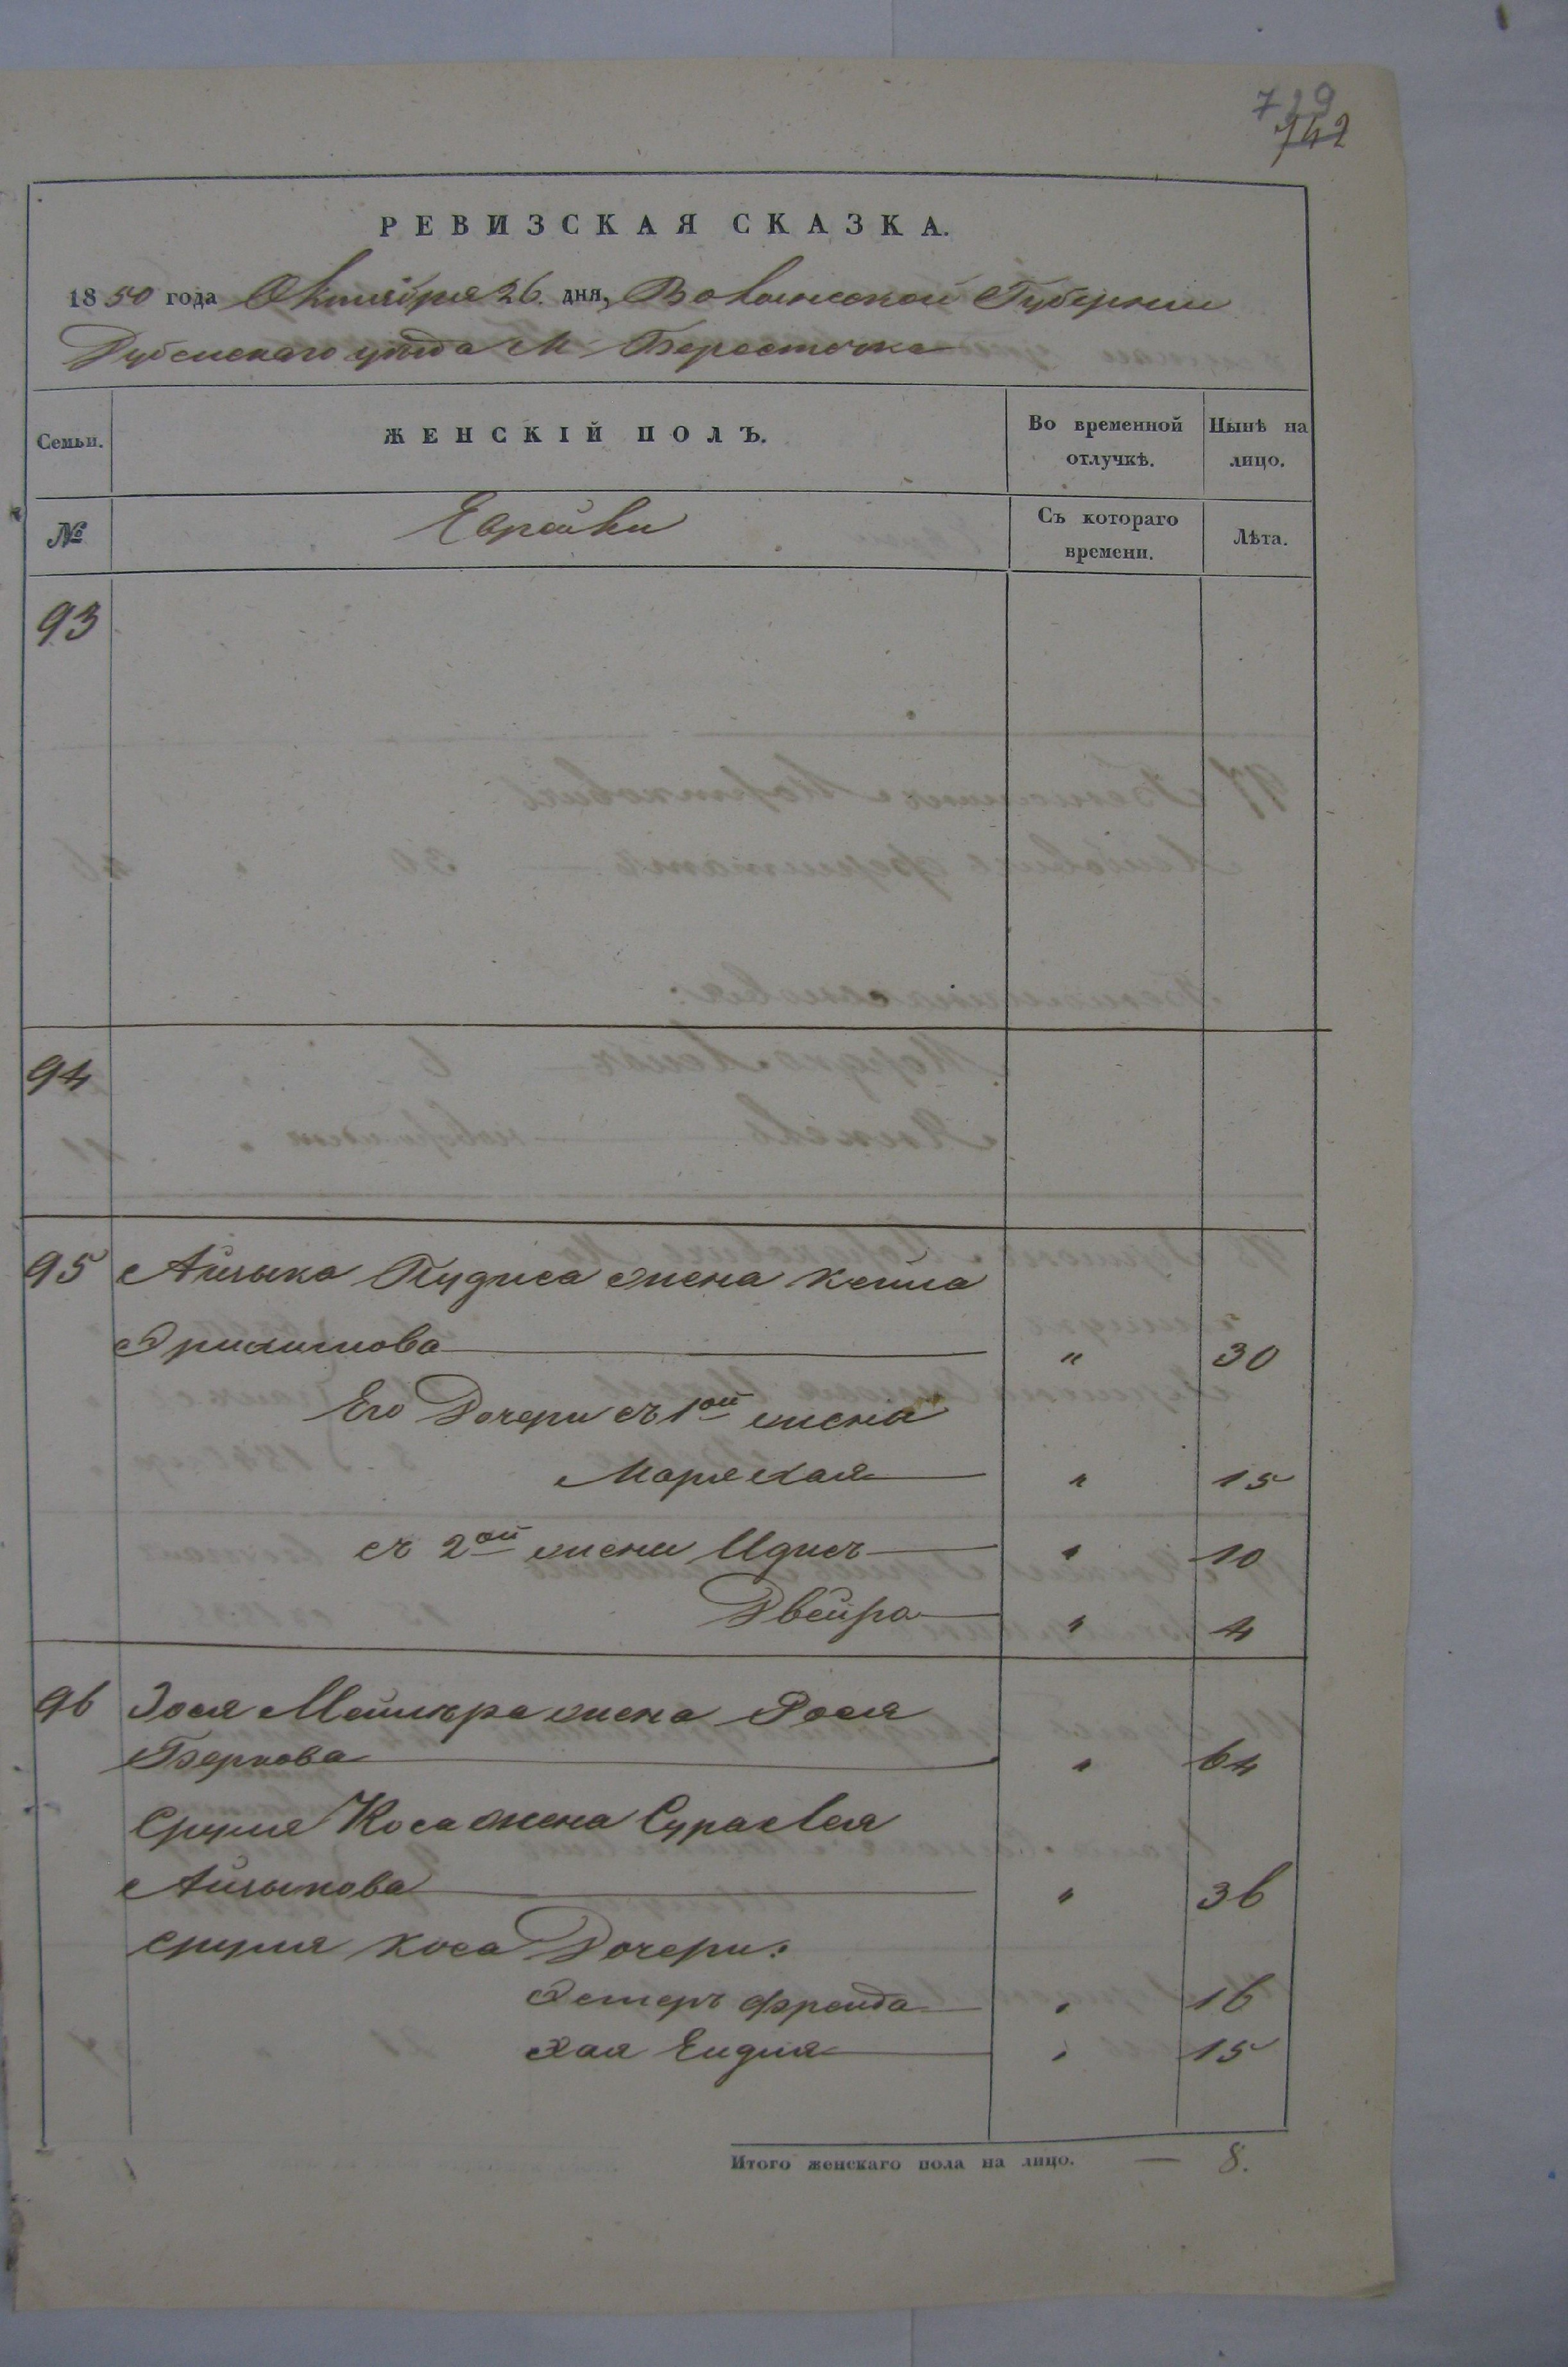 729
742
РЕВИЗСКАЯ СКАЗКА.
1850 года Октября 26 дня, Волынской Губернии
Дубенскаго уезда М Берестечка
Семьи. ЖЕНСКІЙ ПОЛЪ. Во временной отлучкѣ. Нынѣ на лицо.
№ Еврейки Съ котораго времени. Лѣта.
93
94
95 Айзыка Пудиса жена Кейла
" 30
Его Дочери съ 1ой жены
Маря Хая " 15
съ 2ой жены Идись " 10
Двейра " 4
96 Зося жена Рося
Беркова " 64
Сруля Коса жена Сура Лея
Айзыкова " 36
Сруля Коса Дочери:
Эстеръ Фрейда " 16
Хая Ендля " 15
Итого женскаго пола на лицо. — 8.